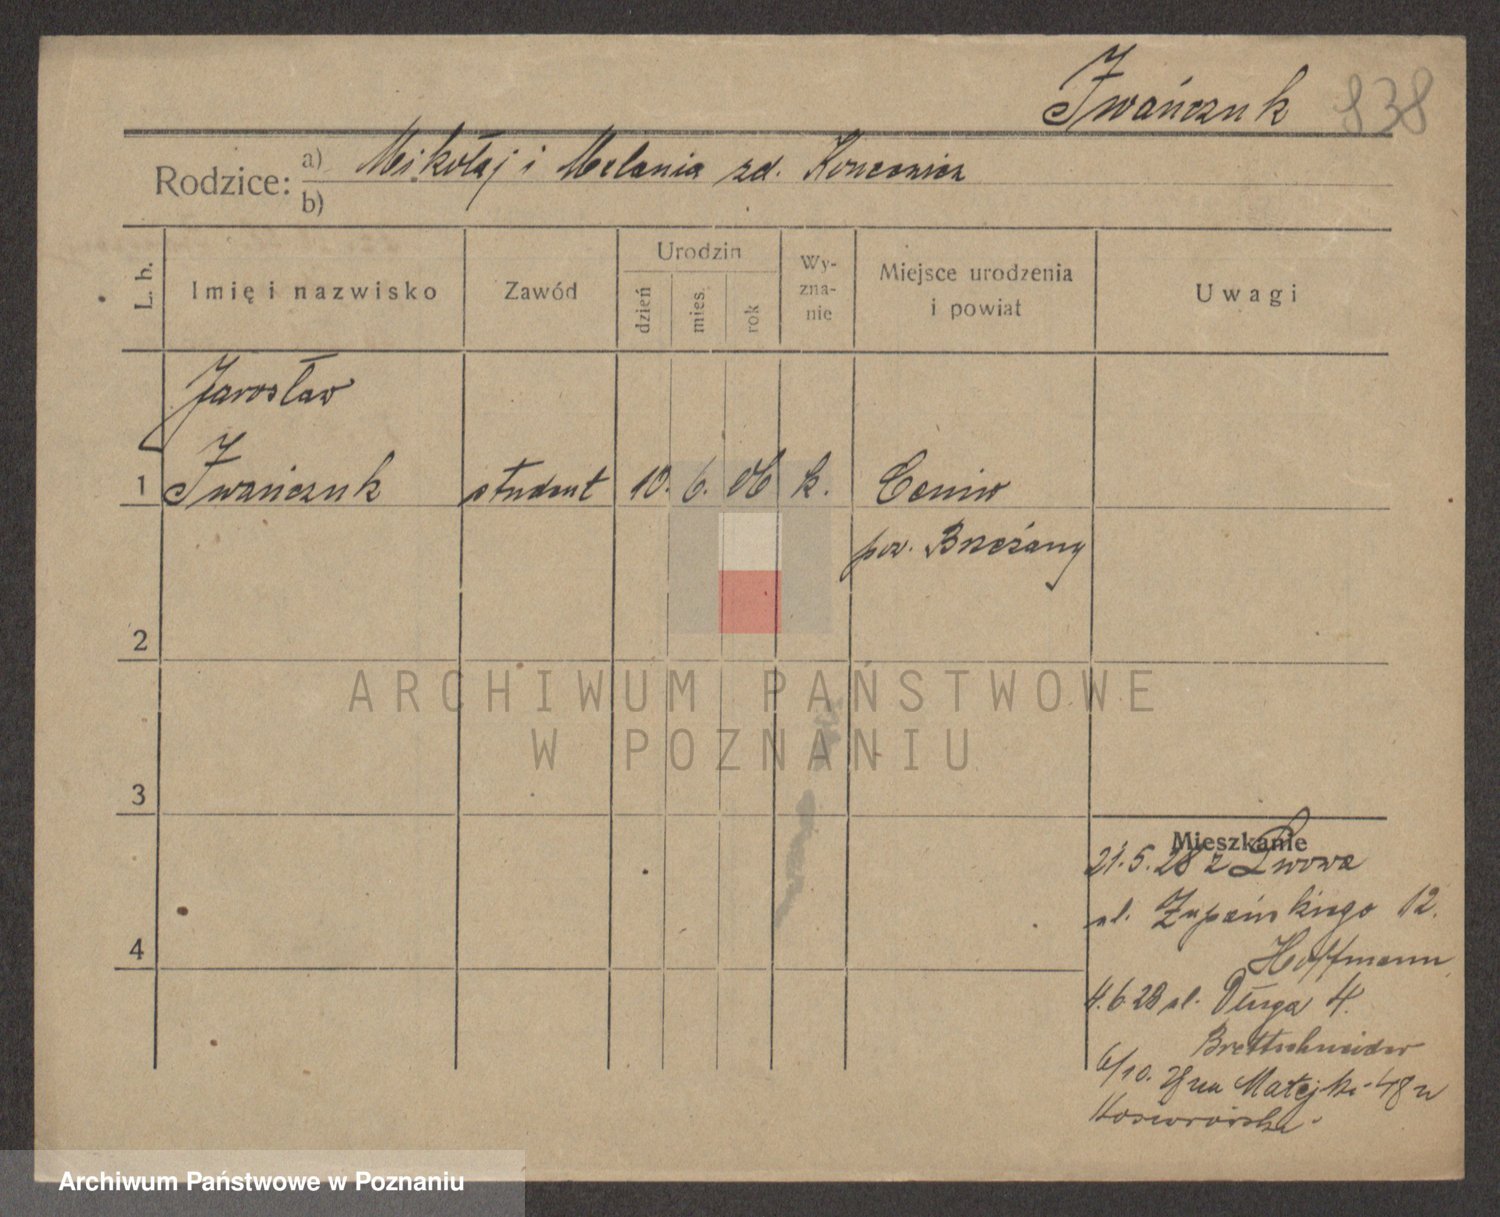 Iwańczuk 838
Rodzice: a) Mikołaj i Melania zd.
b)
L. b. Imię i nazwisko Zawód Urodzin dzień mies. rok Wy-zna-nie Miejsce urodzenia i powiat Uwagi
Jarosław
1 Iwańczuk student 10. 6. 06 k. Ceniów
pow. Brzeżany
2
ARCHIWUM PAŃSTWOWE
W POZNANIU
3
Mieszkanie
21.5.28 z Lwowa
ul. Żupańskiego 12.
Hoffmann
4
4.6.28 ul. Długa 4.
Brettschneider
6/10. Matejki 48
Archiwum Państwowe w Poznaniu